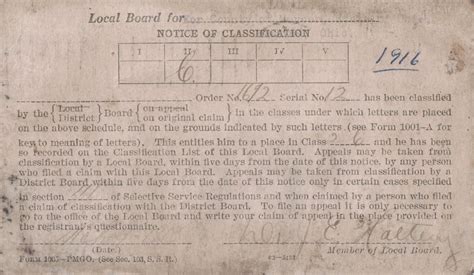 Local Board for
NOTICE OF CLASSIFICATION
I II III IV V
6 1916
Order No. 1612 Serial No. 12 has been classified
by the { Local District } Board { on appeal on original claim } in the classes under which letters are
placed on the above schedule, and on the grounds indicated by such letters (see Form 1001-A for
key to meaning of letters). This entitles him to place in Class and he has been
so recorded on the Classification List of this Local Board. Appeals may be taken from
classification by a Local Board, within five days from the date of this notice, by any person
who filed a claim with the Local Board. Appeals may be taken from classification by a
District Board within five days from the date of this notice only in certain cases specified
in section of Selective Service Regulations and when claimed by a person who filed
a claim of classification with the District Board. To file an appeal it is only necessary to
go to the office of the Local Board and write your claim of appeal in the place provided on
the registrant's questionnaire.
(Date.) Member of Local Board.
Form 1007-PMGO. (See Sec. 103, S. S. R.)